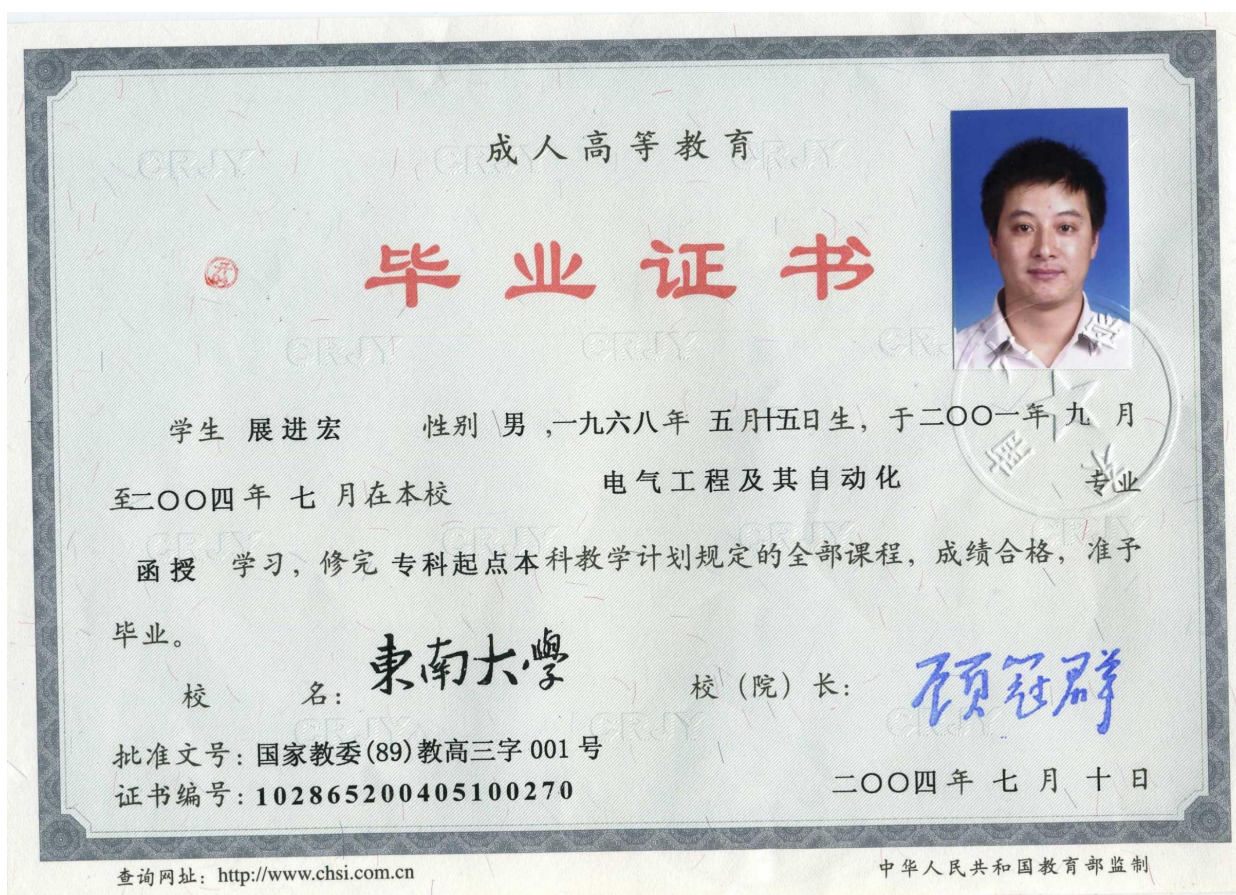 成人高等教育
毕业证书
学生 展进宏 性别 男 ,一九六八年 五月十五日生，于二〇〇一年 九 月
至二〇〇四年 七 月在本校 电气工程及其自动化 专业
函授 学习，修完 专科起点本科教学计划规定的全部课程，成绩合格，准予
毕业。
校 名：東南大學 校（院）长：顾冠群
批准文号：国家教委(89)教高三字 001 号
证书编号：102865200405100270
二〇〇四年 七 月 十 日
查询网址：http://www.chsi.com.cn 中华人民共和国教育部监制